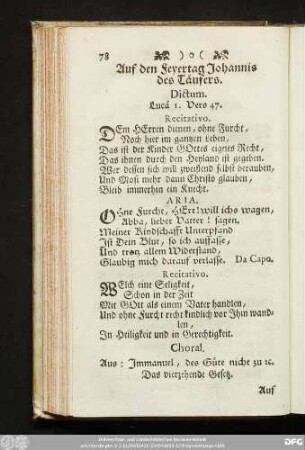 78 ) o (
Auf den Feyertag Johannis
des Täufers.
Dictum.
Lucä 1. Vers 47.
Recitativo.
DEm HErren dienen, ohne Furcht,
Noch hier im gantzen Leben,
Das ist der Kinder GOttes eignes Recht,
Das ihnen durch den Heyland ist gegeben.
Wer dessen sich will zweiflend selbst berauben,
Und Mosi mehr dann Christo glauben,
Bleib immerhin ein Knecht.
ARIA.
OHne Furcht, HErr! will ichs wagen,
Abba, lieber Vatter! sagen,
Meiner Kindschafft Unterpfand
Ist Dein Blut, so ich auffasse,
Und trotz allem Widerstand,
Glaubig mich darauf verlasse. Da Capo.
Recitativo.
WElch eine Seligkeit,
Schon in der Zeit
Mit GOtt als einem Vater handlen,
Und ohne Furcht recht kindlich vor Ihm wand-
len,
In Heiligkeit und in Gerechtigkeit.
Choral.
Aus: Immanuel, des Güte nicht zu ꝛc.
Das vierzehende Gesetz.
Auf
DFG